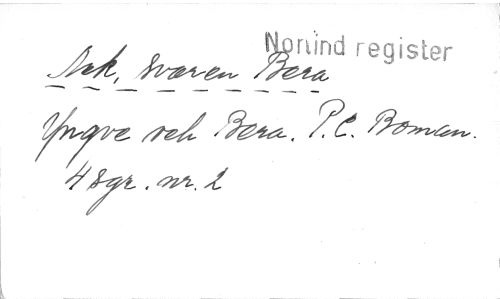 Norlind register
Ack, Svaren Bera
Yngve och Bera. P.C. Boman.
4 Sgr. nr. 2